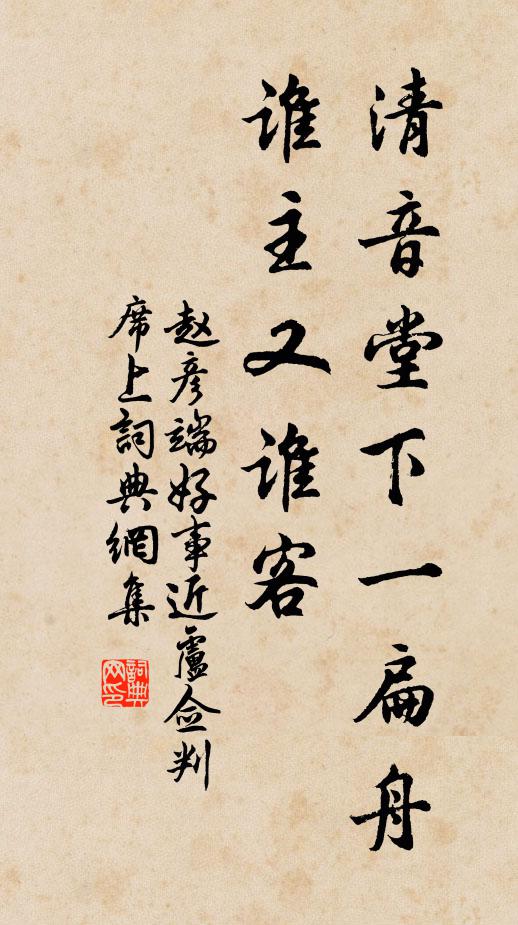 清音堂下一扁舟
谁主又谁客
赵彦端好事近盧佥判
席上詞典網集
詞典网印